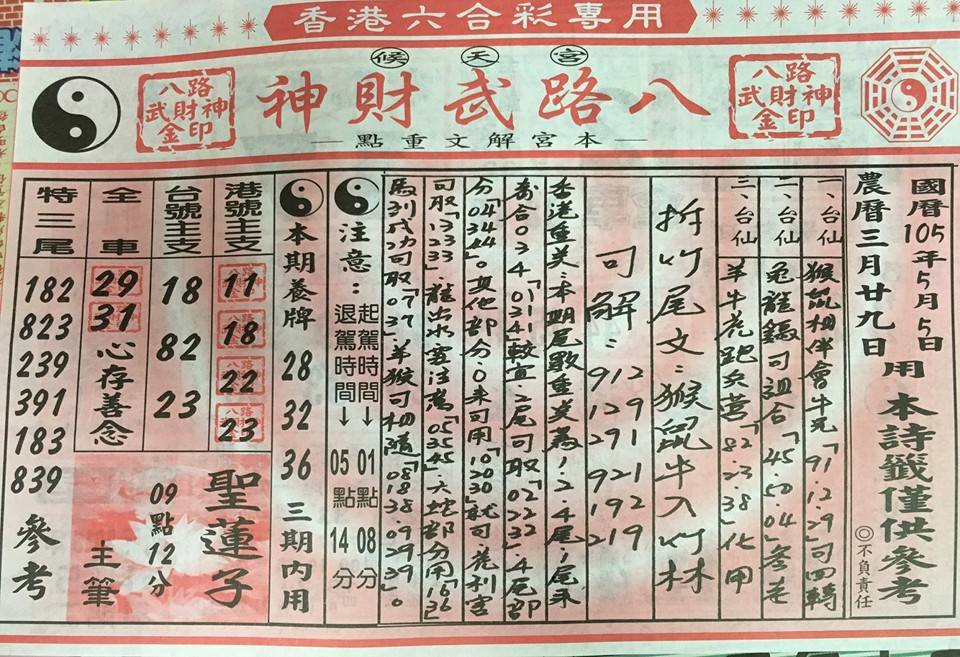 香港六合彩專用
候天宮
八路武財神
八路武財神金印
八路武財神金印
本宮解文重點
國曆105年5月5日
農曆三月廿九日
用
本詩籤僅供參考
◎不負責任
一、台仙
猴鼠相伴會牛兄「91.12.29」可四轉
二、台仙
兔龍鍋可組合「45.50.04」參走
三、台仙
羊牛虎跑兵營「82.23.38」化甲
拆竹尾文：猴鼠牛入竹林
可解：
912
129
291
921
192
219
香港重美：本期尾數重美為1.2.4尾，1尾來
0134」較宜，2尾可取「02
22
32」，4尾部
分「04
34
44」。其他部分，0來可用「10
20
30」
可取「13
23
33」
「05
35
45」
「16
36」
馬到成功可取「07
37」羊猴可相隨「08
18
38.09
29
39」。
注意：
起駕時間↓01點08分
退駕時間↓05點14分
本期養牌
28
32
36
三期內用
港號主支
11
18
22
23
台號主支
18
82
23
全車
29
31
心存善念
特三尾
182
823
239
391
183
839
參考
聖蓮子
09點12分
主筆